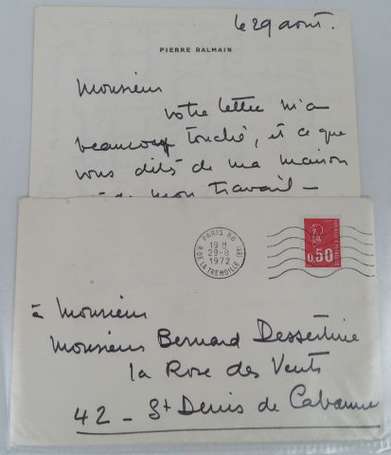 le 29 août.
PIERRE BALMAIN
Monsieur
votre lettre m'a
beaucoup touché, et ce que
vous dites de ma maison
et de mon travail -
PARIS 86
19 H
29-8
1972
R. DE LA TREMOILLE (8E)
0,50
à Monsieur
Monsieur Bernard Dessertine
la Rose des Vents
42 - St Denis de Cabanne